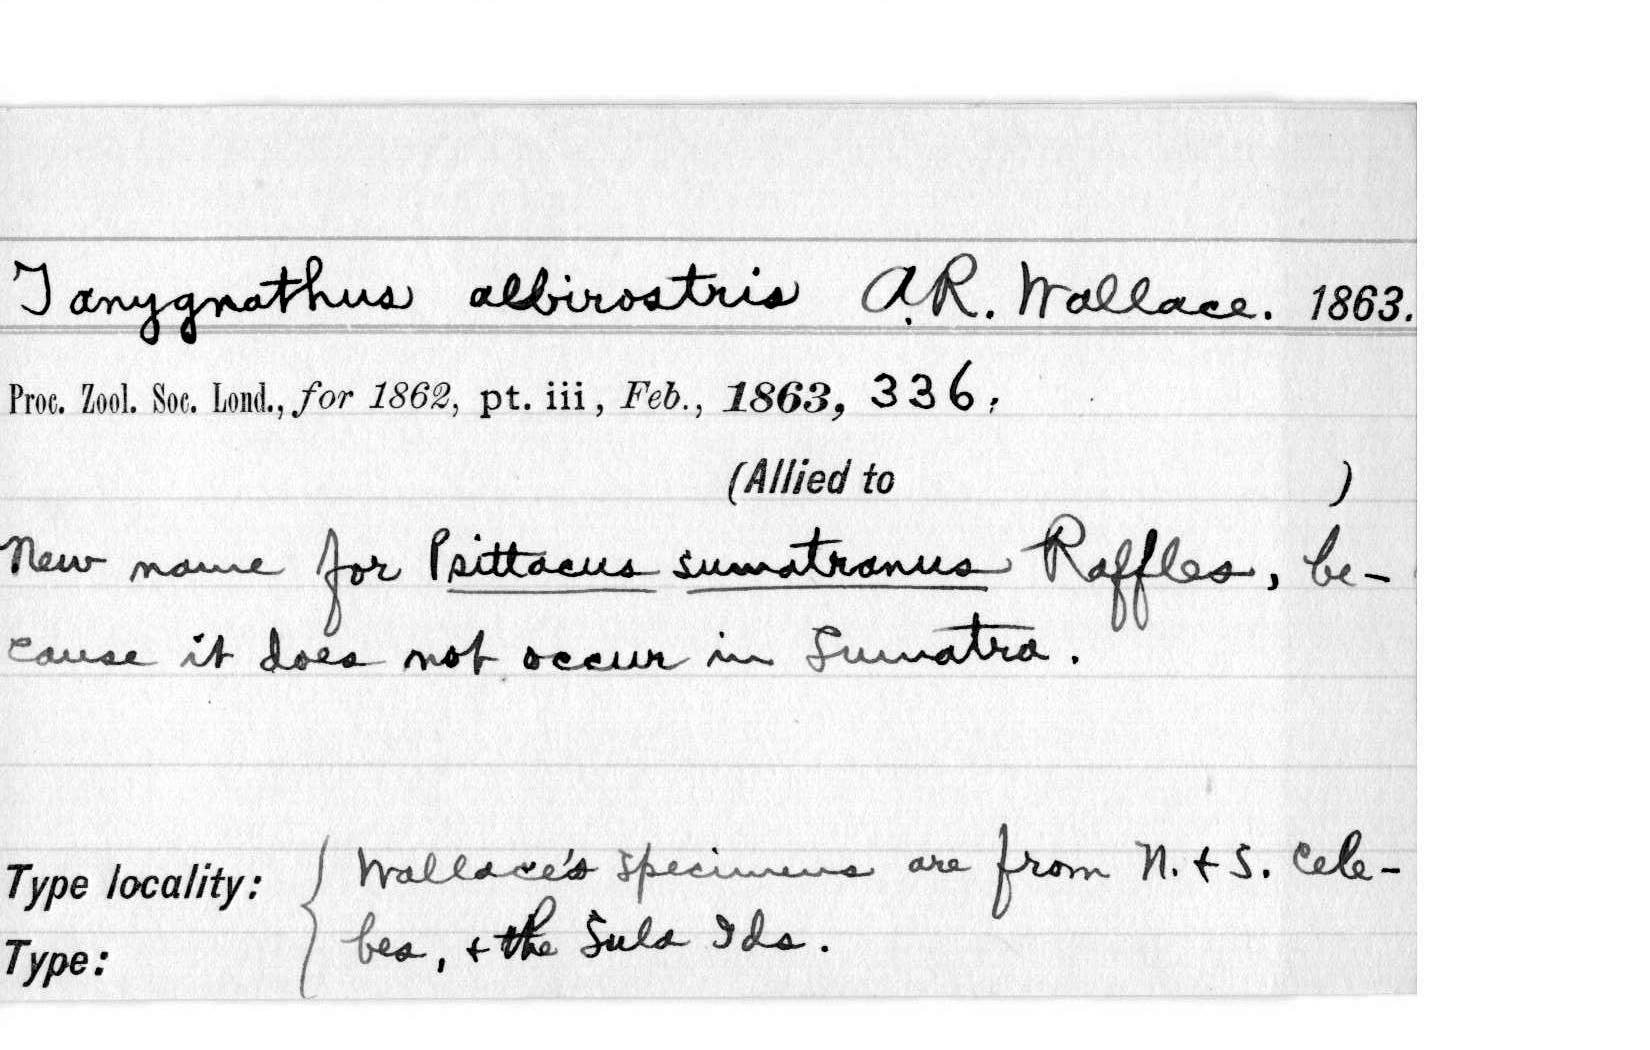 Tanygnathus albirostris A.R. Wallace. 1863.
Proc. Zool. Soc. Lond., for 1862, pt. iii, Feb., 1863, 336.
(Allied to )
New name for Psittacus sumatranus Raffles, be-
cause it does not occur in Sumatra.
Type locality: { Wallace's specimens are from N. + S. Cele-
Type: bes, + the Sula Ids.